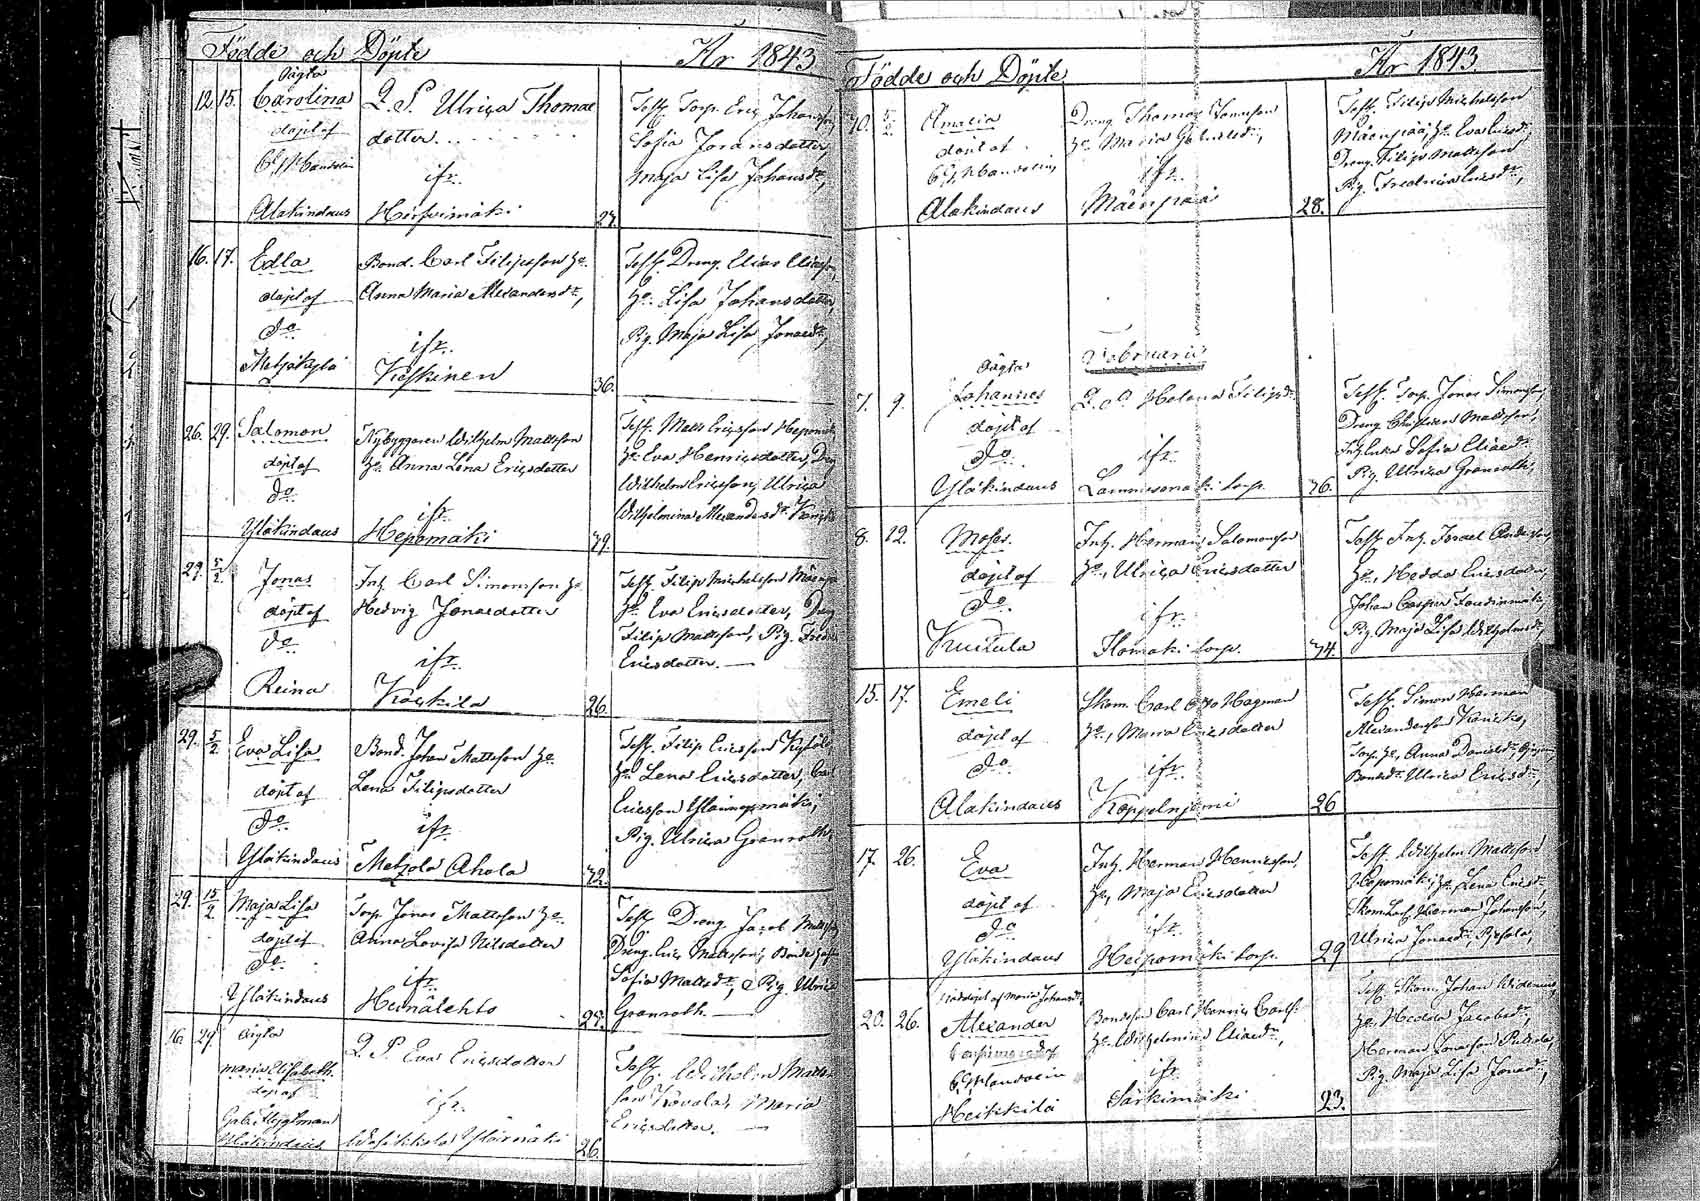 Födde och Döpte År 1843
12. 15. Oägta
Carolina
döpt af
Alakindaus
Q. P. Ulrica Thomae
dotter
ifr.
Hirfvimäki
27.
Test. Torp. Eric Johansson,
Sofia Joransdotter,
Maja Lisa Johansdr,
16. 17. Edla
döpt af
do
Metzäkylä
Bond. Carl Filipsson Ho.
Anna Maria Alexandersdr,
ifr.
Keskinen
36.
Test. Dreng. Elias Eliasson,
Ho. Lisa Johansdotter,
Pig. Maja Lisa Jonaedr,
26. 29. Salomon
döpt af
do
Yläkindaus
Nybyggaren Wilhelm Mattsson
Ho. Anna Lena Ericsdotter
ifr.
Hepomäki
39.
Test. Matts Ericsson Hepomäki
Ho. Eva Henricsdotter, Dreng
Wilhelm Ericsson, Ulrica
Wilhelmina Alexandersdr
29. 5/2 Jonas
döpt af
do
Reina
Inh. Carl Simonsson Ho
Hedvig Jonaedotter
ifr.
Koskila
26.
Test. Filip Michelsson Mäenpää
Ho. Eva Ericsdotter, Dreng
Filip Mattsson, Pig. Fredrica
Ericsdotter.
29. 5/2 Eva Lisa
döpt af
do
Yläkindaus
Bond. Johan Mattsson Ho
Lena Filipsdotter
ifr.
Metzola Ahola
32.
Test. Filip Ericsson
Ho. Lena Ericsdotter, Carl
Ericsson
Pig. Ulrica Granroth,
29. 15/2 Maja Lisa
döpt af
do
Yläkindaus
Torp. Jonas Mattsson Ho.
Anna Lovisa Nilsdotter
ifr.
Heinälehto
Test. Dreng Jacob Mattsson,
Dreng. Eric Mattsson,
Sofia Mattsdr, Pig. Ulrica
Granroth.
16 29 Oägta
Maria Elisabeth
döpt af
Yläkindaus
Q. P. Eva Ericsdotter
ifr.
26.
Test. Wilhelm Matts
son Kovala, Maria
Ericsdotter.
Födde och Döpte År 1843.
30. 5/2 Amalia
döpt af
Alakindaus
Dreng Thomas
Ho. Maria Gabrielsdr,
ifr.
Mäenpää
28.
Test. Filip Michelsson
Mäenpää, Ho. Eva Ericsdr,
Dreng. Filip Mattsson,
Pig. Fredrica Ericsdr,
Februarii
7. 9. Oägta
Johannes
döpt af
do.
Yläkindaus
Q. P. Helena Filipsdr
ifr.
36.
Test. Torp. Jonas Simonsson,
Dreng Christian Mattsson,
Sofia Eliaedr,
Pig. Ulrica Granroth,
8. 12. Moses.
döpt af
do.
Kuitula
Inh. Herman Salomonsson
Ho, Ulrica Ericsdotter
ifr.
Ilomäki torp.
34.
Test. Inh. Israel Andersson,
Ho, Hedda Ericsdotter,
Johan Casper
Pig. Maja Lisa Wilhelmsdr,
15. 17. Emeli
döpt af
do.
Alakindaus
Skom. Carl Otto Hagman
Ho, Maria Ericsdotter
ifr.
Koppelnjemi
26
Test. Simon Herman
Alexandersson
Torp. Ho, Anna Danielsdr,
Bondedr Ulrica Ericsdr,
17. 26. Eva
döpt af
do
Yläkindaus
Inh. Herman Henricsson,
Ho, Maja Ericsdotter
ifr.
Heipomäki torp.
29
Test. Wilhelm Mattsson
Hepomäki, Ho Lena Ericsdr,
Herman Johansson,
Ulrica Jonaedr,
20. 26. Nöddöpt af Maria Johansdr
Alexander
Heikkilä
Bondeson Carl Henric Carlss.
Ho. Wilhelmina Eliaedr,
ifr
Särkimäki
23.
Test. Skom. Johan Widenius,
Ho, Hedda Jacobsdr,
Herman Jonasson
Pig. Maja Lisa Jonaedr,